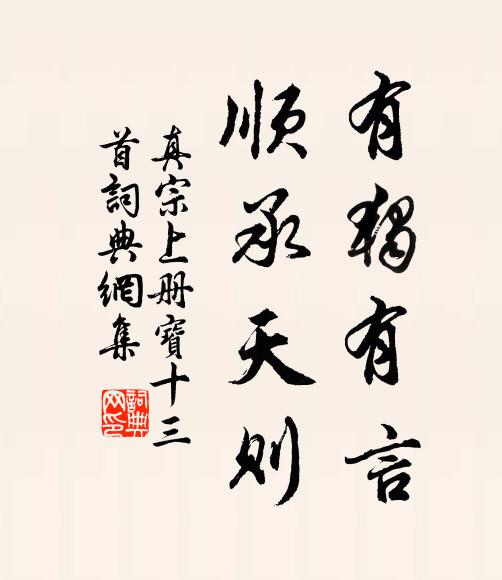 有有言
順承天則
真宗上册寶十三
首詞典網集
詞典
网印